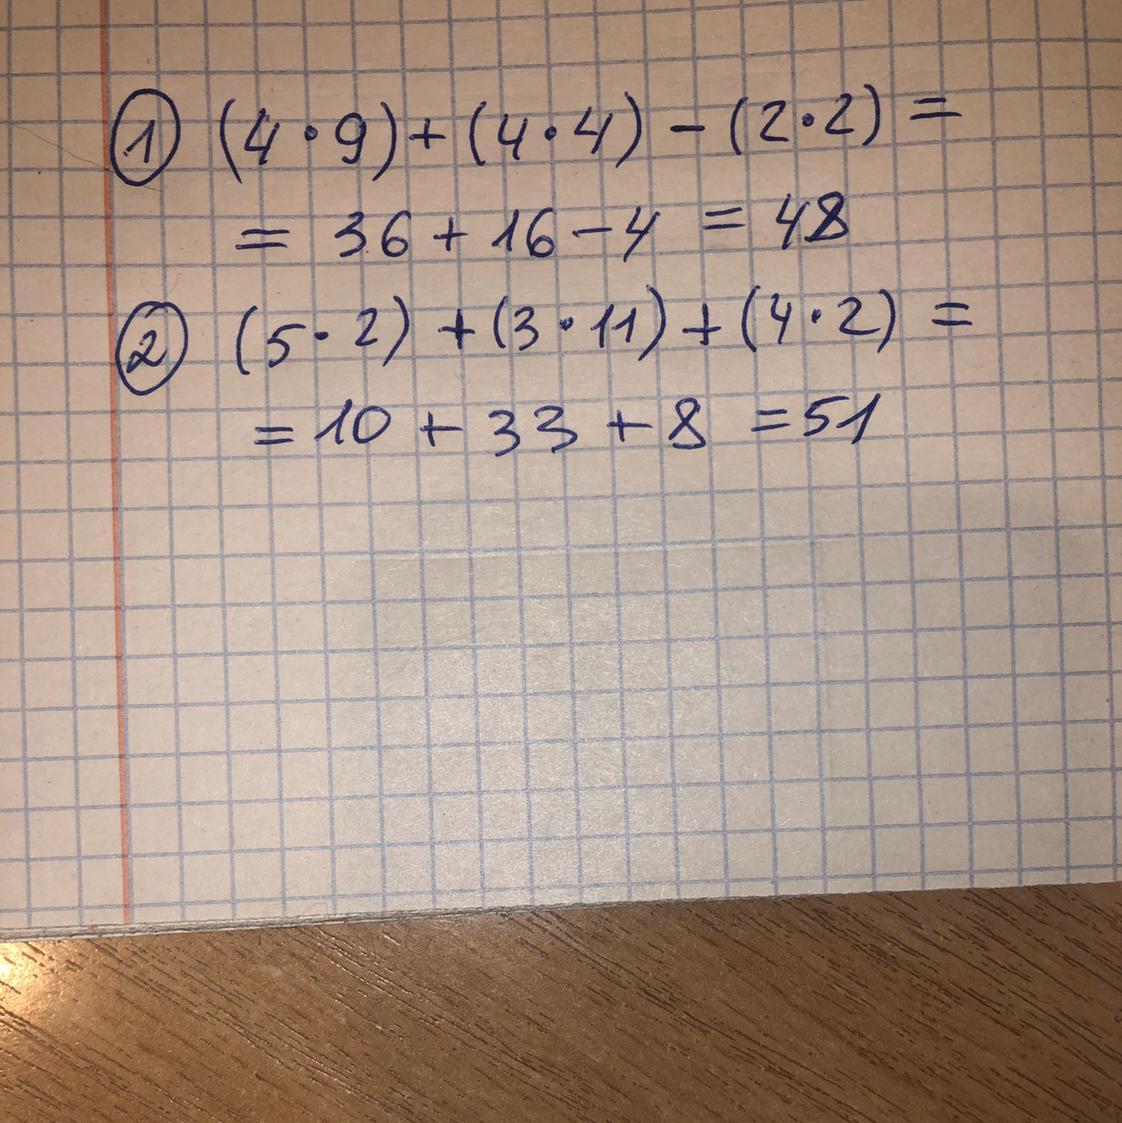 ① (4·9)+(4·4)-(2·2)=
= 36+16-4 = 48
② (5·2)+(3·11)+(4·2)=
= 10 + 33 + 8 = 51